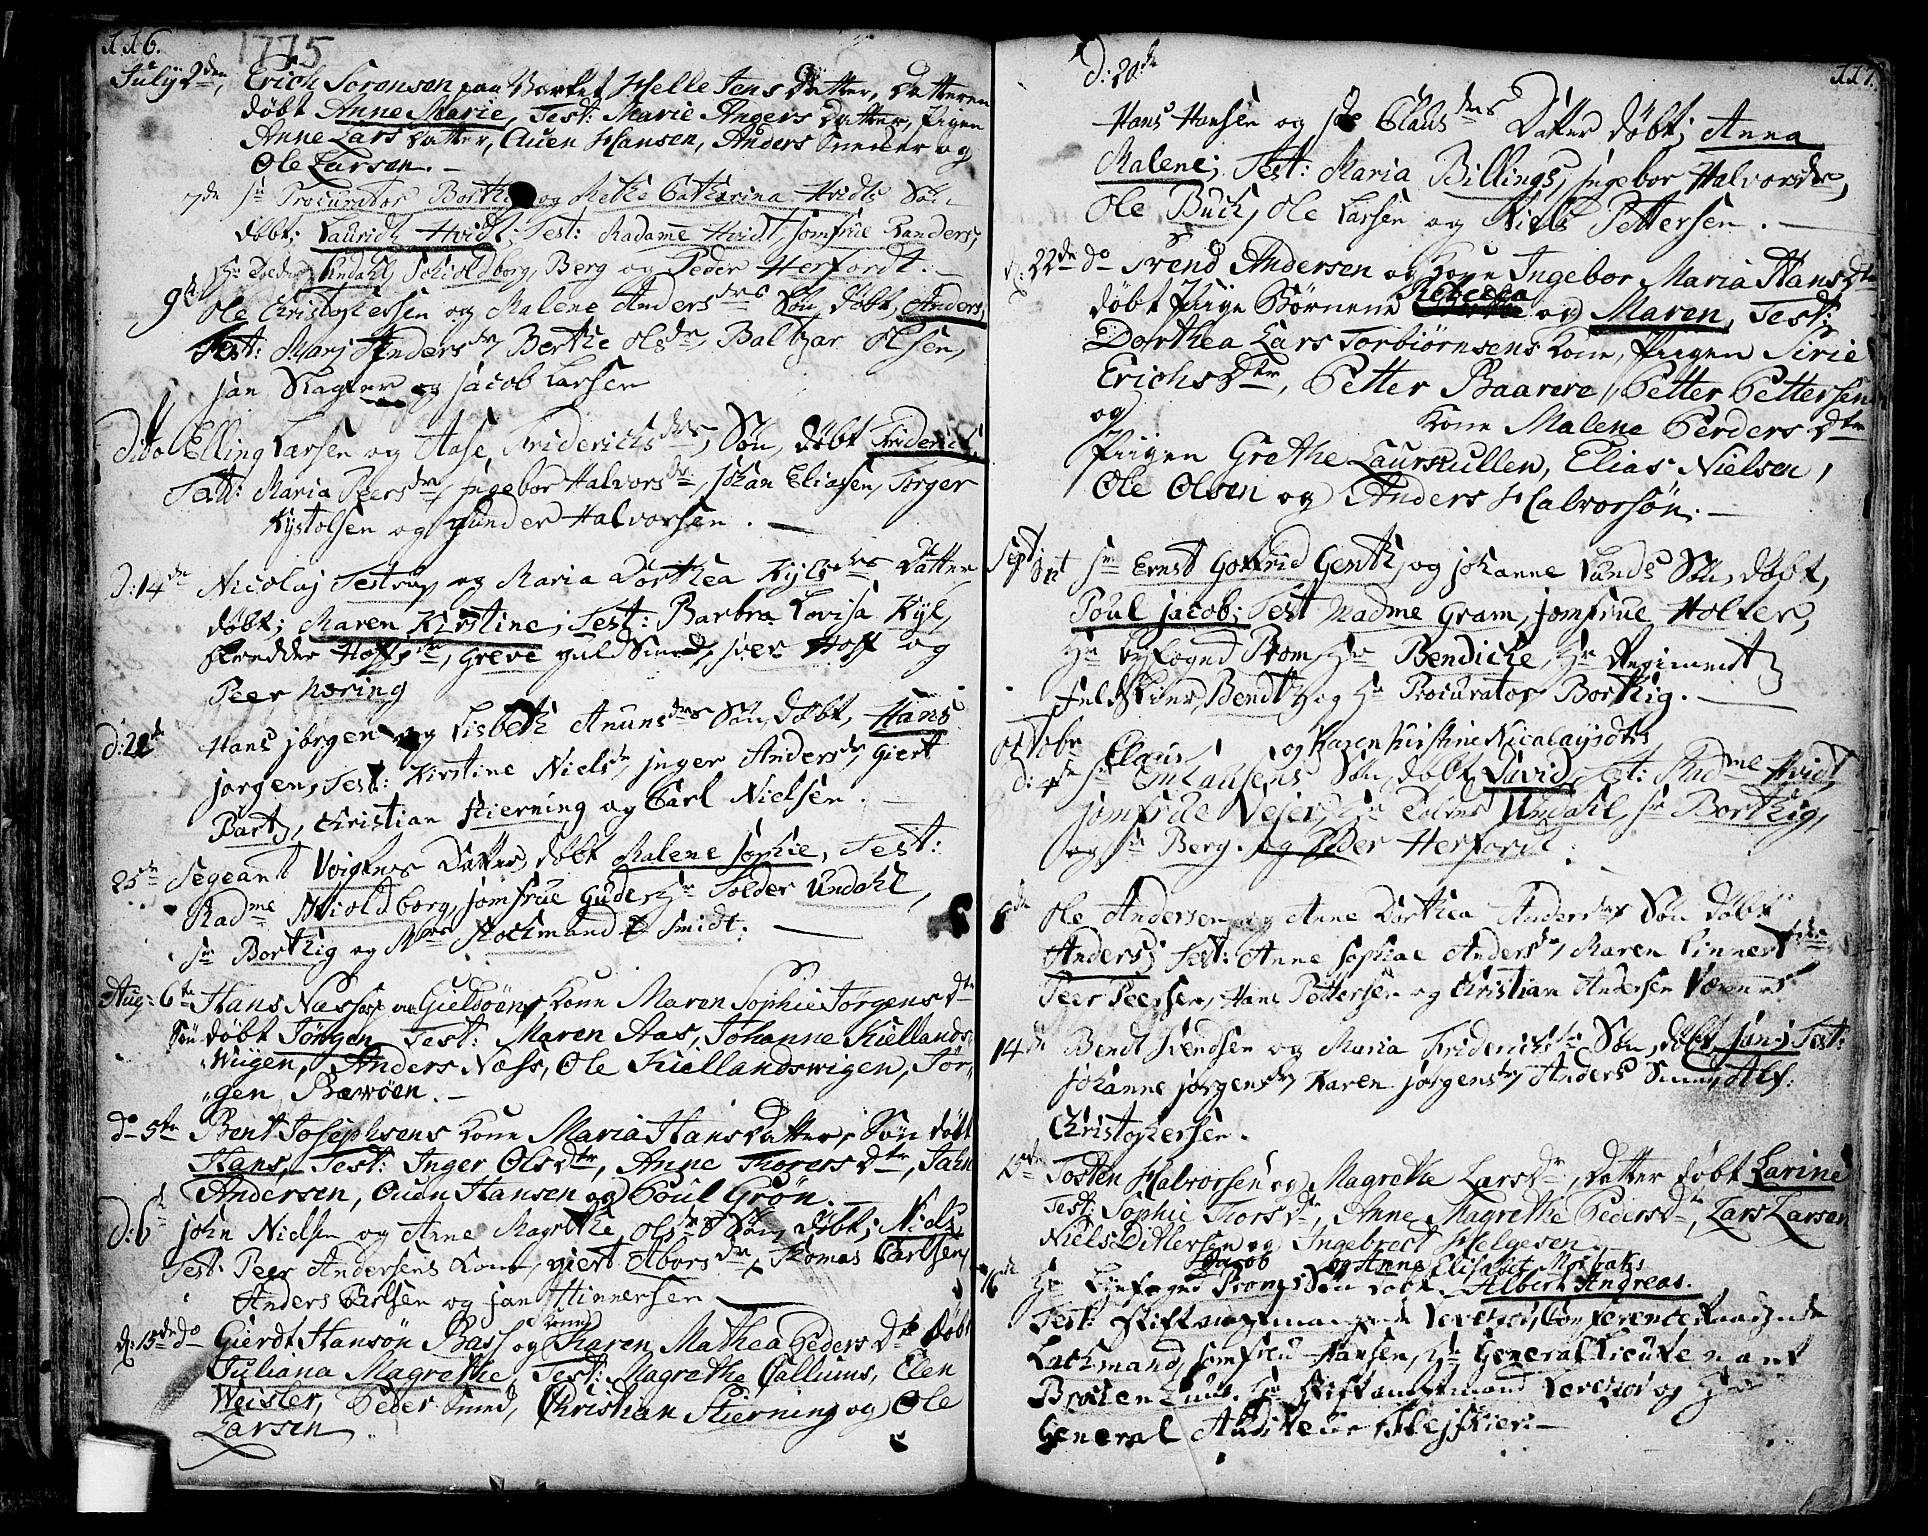 116.
1775
July 2den, Erich Sorensen paa Værket Helle Jens Datter, Datteren
døbt Anne Marie, Test: Marie Angers Datter, Pigen
Anne Lars Datter, Auen Hansen, Anders Smeder og
Ole Larsen.
7de Sr Procurator Borthig og Methe Catharina Hvidts Søn
døbt; Laurids Hvidt; Test: Madame Hvidt, Jomfrue Randers,
Hr Undahl, Schioldborg, Berg og Peder Herfordt.
9de Ole Christophersen og Malene Andersdrs Søn døbt, Anders,
Test: Marj Andersdr, Berthe Olsdr, Baltzar Olsen,
Jan Slagter og Jacob Larsen
Dito Elling Larsen og Aase Friderichsdrs, Søn, døbt Friderich,
Test: Maria Peersdr, Ingebor Halvorsdr, Johan Eliassen, Torger
Kystolsen og Gunder Halvorsen.
d: 14de Nicolaj Testrup og Maria Dorthea Kylsdrs Datter
døbt; Maren Kirstine; Test: Barbra Lovisa Kyl,
Skredder Hoffs, Greve Guldsmed, Iver Hoff og
Peer Næring
d: 22de Hans Jørgen og Lisbeth Anunsdrs Søn, døbt, Hans
Jørgen, Test: Kirstine Nielsdr, Inger Andersdr, Giert
Bartz, Christian Stierning og Carl Nielsen.
25de Segeant Voigtes Datter døbt Malene Sophie, Test:
Madme Schioldborg, Jomfrue Guder, Hr Tolder Undahl,
Sr Borthig og Stockmand & Smidt.
Aug: 6te Hans Næss paa Gieldøens Kone Maren Sophie Jørgens dtr
Søn døbt Jørgen, Test: Maren Aas, Johanne Kiellands
Wiigen, Anders Næss, Ole Kiellandswigen, Jør-
gen Bærøen.
do 5te Bent Josephsens Kone Maria Hans Datter, Søn døbt
Hans, Test: Inger Olsdtr, Anne Thoresdtr, Jahn
Andersen, Ouen Hansen og Poul Grøn.
d: 6te John Nielsen og Anne Magrethe Olsdrs Søn, døbt; Niels,
Test: Peer Andersens Kone, Giert Aborsdr, Thomas Carlsen,
Anders Carlsen og Jan Hinnersen
d: 13de do Gierdt Hansøn Bass og Kone Karen Mathea Peders Dtr døbt
Juliana Magrethe, Test: Magrethe Calliums, Elen
Weisler, Peder Smed, Christian Stierning og Ole
Larsen.
117.
d: 20de
Hans Hansen og Clausdrs Datter døbt; Anna
Malene; Test: Maria Billings, Ingebor Halvorsdr,
Ole Buch, Ole Larsen og Niels Pettersen.
d: 22de do Svend Andersen og Kone Ingebor Maria Hansdtr
døbt Pige Børnene Rebecca og Maren, Test:
Dorthea Lars Torbiørnsens Kone, Pigen Sirie
Erichsdtr, Petter Baarere, Petter Pettersens
og Kone Malene Perdersdtr
Piigen Grethe Laurskullen, Elias Nielsen,
Ole Olsen og Anders Halvorsøn.
Sept: Sr Ernst Gotfrid Gentz, og Johanne Lunds Søn, døbt,
Poul Jacob; Test Madme Gram, Jomfrue Holter,
Hr Byefoged Prom, Hr Bendiche, Hr Regiment
Feldskier, Bendtz og Hr Procurator Borthig.
October Claus, og Karen Kirstine Nicalaysdtr
d: Sr Emlausens Søn døbt David, Test: Madme Hvidt,
Jomfrue Vejer, Hr Undahl, Sr Borthig,
og Sr Berg. og Peder Herfordt.
8de Ole Andersen og Anne Dorthea Andersdrs Søn døbt
Anders; Test: Anne Sophae Andersdr, Maren Linnert
Peer Peersen, Hans Pettersen og Christian Andersen
14de Bendt Svendsen og Maria Friderichsdr Søn, døbt Jan; Test:
Johanne Jørgensdr, Karen Jørgensdr, Anders Smed, Alf:
Christophersen.
15de Tosten Halvorsen og Magrethe Larsdr, Datter døbt Larine
Test: Sophie Thorsdr, Anne Magrethe Pedersdr, Lars Larsen
Niels Ditlersen og Ingebrect Helgesen
Jacob og Anna Elisabet Morbaks
16de Hr Byefoged Proms Søn døbt Albert Andreas.
Test: Stiftamptmand Conference Raadinde
Lachmand, Jomfrue Hansen, Hr General Lieutenant
Hr Stiftamptmand og Hr
General Auditeur Fleischer.